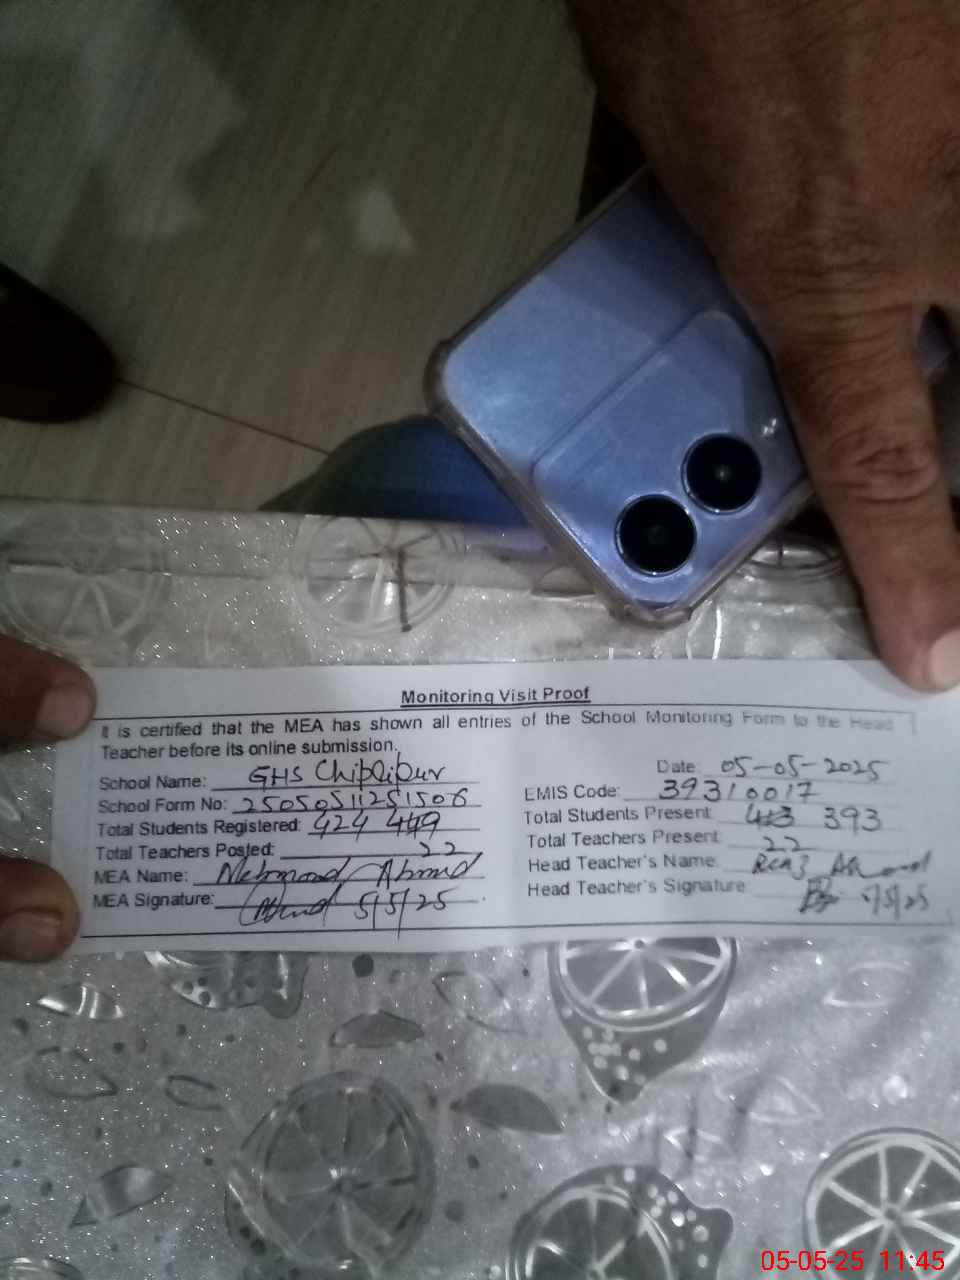 Monitoring Visit Proof
It is certified that the MEA has shown all entries of the School Monitoring Form to the Head
Teacher before its online submission.
Date: 05-05-2025
School Name: GHS Chiplipur
EMIS Code: 39310017
School Form No: 25050511251506
Total Students Present: 413 393
Total Students Registered: 424 449
Total Teachers Present: 22
Total Teachers Posted: 22
Head Teacher's Name: Ahmad
MEA Name: Mehmood Ahmad
Head Teacher's Signature: /5/25
MEA Signature: Ahmad 5/5/25
05-05-25 11:45